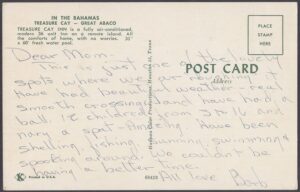 IN THE BAHAMAS
TREASURE CAY - GREAT ABACO
TREASURE CAY INN is a fully air-conditioned,
modern 36 unit inn on a remote island. All
the comforts of home, with no worries. 30'
x 60' fresh water pool.
PLACE
STAMP
HERE
POST CARD
Address
Dear Mom -
This is just one of the lovely
spots where we are
have had beautiful weather - real
smooth crossing and have had a
ball. 12 children from 5 to 16 and
nary a spat - Amazing. Have been
shelling, fishing, sunning, swimming &
around, we couldn't be
having a better
All love Barb